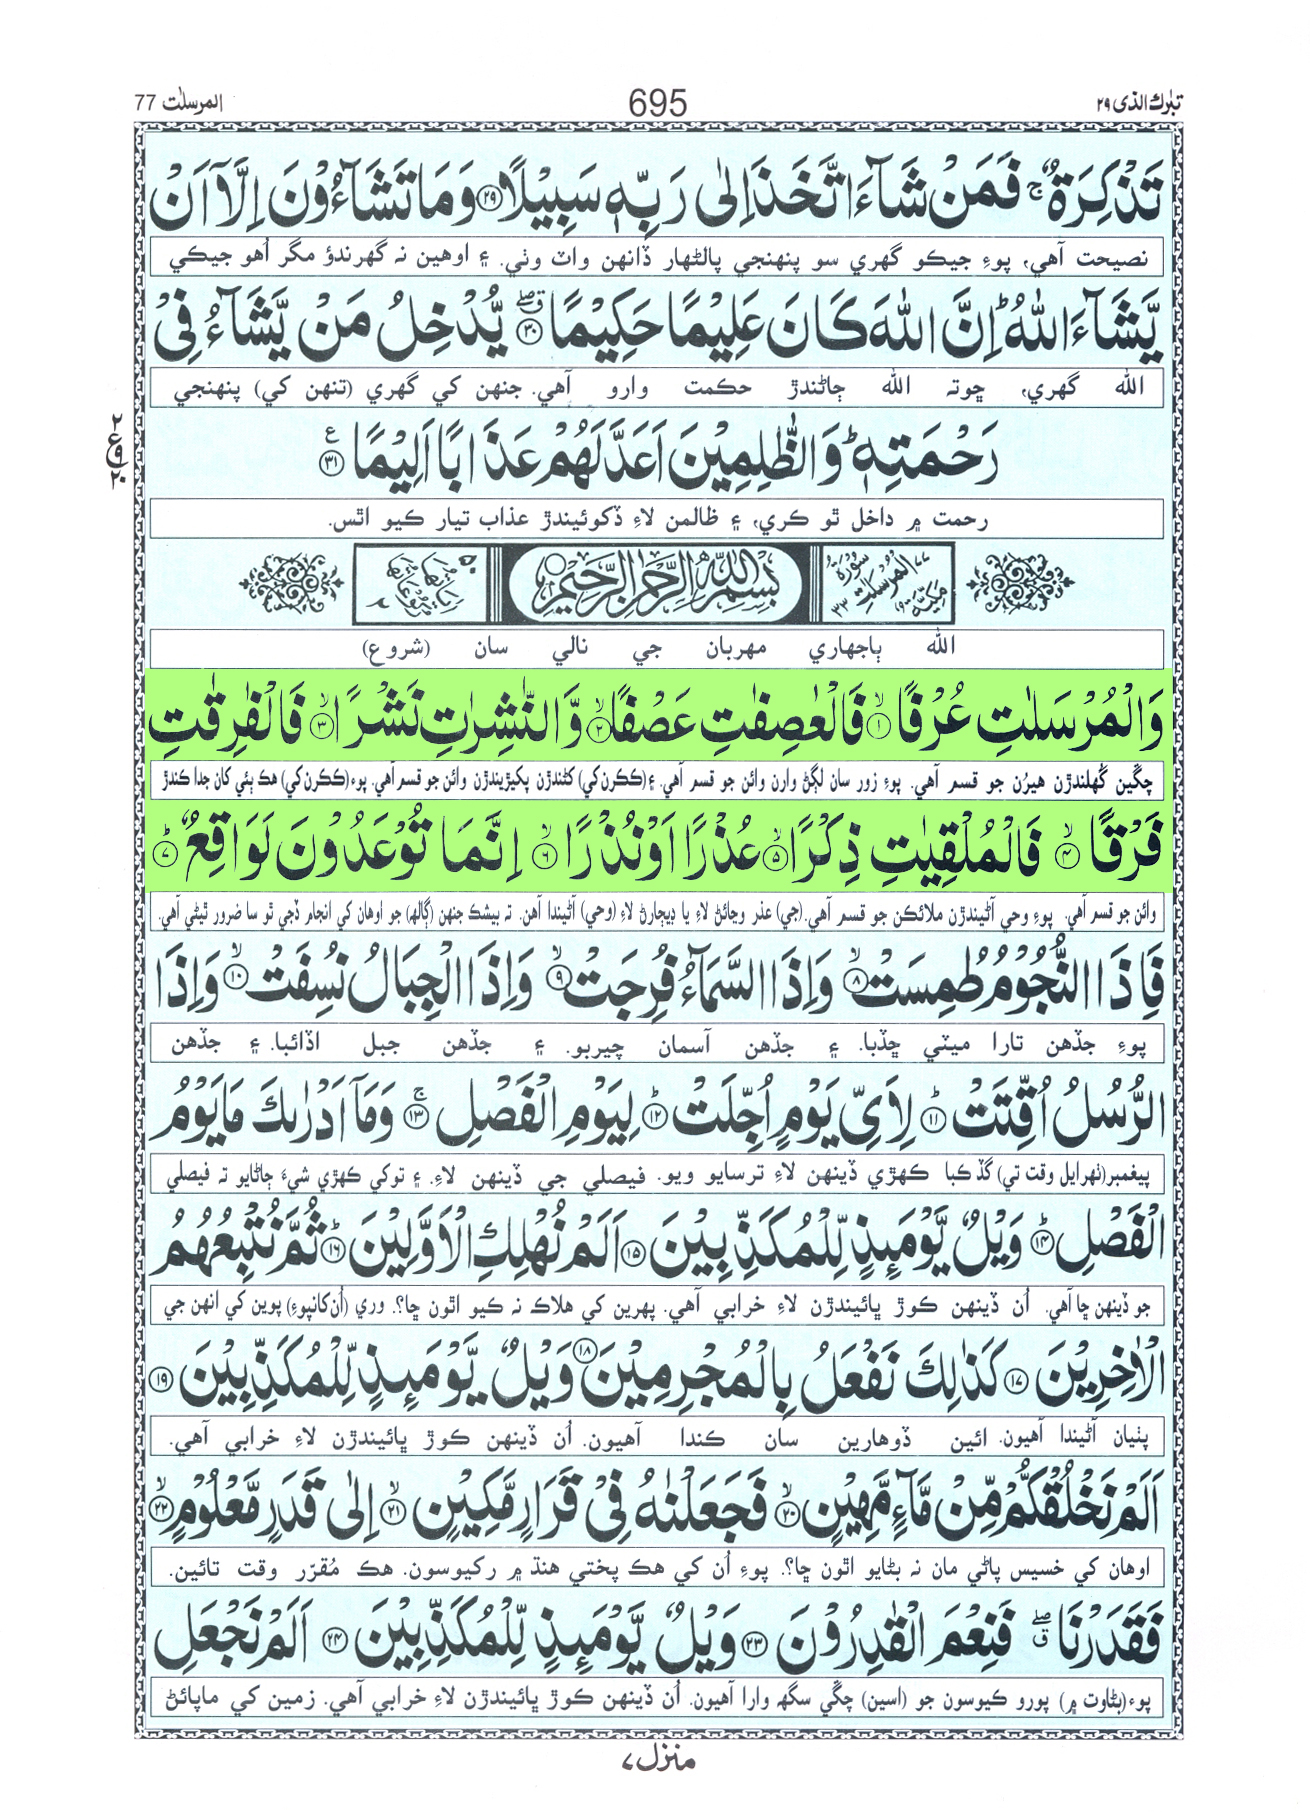 تبٰرك الذى ٢٩
695
المرسلٰت 77
تَذْكِرَةٌ ۚ فَمَنْ شَآءَ اتَّخَذَ اِلٰى رَبِّهٖ سَبِيْلًا ﴿٢٩﴾ وَمَا تَشَآءُوْنَ اِلَّآ اَنْ
نصيحت آهي، پوءِ جيڪو گهري سو پنهنجي پالڻهار ڏانهن واٽ وٺي. ۽ اوهين نہ گهرندؤ مگر اُهو جيڪي
يَّشَآءَ اللّٰهُ ؕ اِنَّ اللّٰهَ كَانَ عَلِيْمًا حَكِيْمًا ﴿٣٠﴾ يُّدْخِلُ مَنْ يَّشَآءُ فِىْ
الله گهري، ڇوتہ الله ڄاڻندڙ حڪمت وارو آهي. جنهن کي گهري (تنهن کي) پنهنجي
رَحْمَتِهٖ ؕ وَالظّٰلِمِيْنَ اَعَدَّ لَهُمْ عَذَابًا اَلِيْمًا ﴿٣١﴾
ع
٢
٢٠
رحمت ۾ داخل ٿو ڪري، ۽ ظالمن لاءِ ڏکوئيندڙ عذاب تيار ڪيو اٿس.
٧٧ سُوْرَةُ الْمُرْسَلٰتِ مَكِّيَّةٌ ٣٣
بِسْمِ اللّٰهِ الرَّحْمٰنِ الرَّحِيْمِ
اٰيَاتُهَا ٥٠ رُكُوْعَاتُهَا ٢
الله ٻاجهاري مهربان جي نالي سان (شروع)
وَالْمُرْسَلٰتِ عُرْفًا ۙ﴿١﴾ فَالْعٰصِفٰتِ عَصْفًا ۙ﴿٢﴾ وَّالنّٰشِرٰتِ نَشْرًا ۙ﴿٣﴾ فَالْفٰرِقٰتِ
چڱين گُهلندڙن هيرُن جو قسم آهي. پوءِ زور سان لڳڻ وارن وائن جو قسم آهي. ۽ (ڪڪرن کي) کڻندڙن پکيڙيندڙن وائن جو قسم آهي. پوءِ (ڪڪرن کي) هڪ ٻئي کان جدا ڪندڙ
فَرْقًا ۙ﴿٤﴾ فَالْمُلْقِيٰتِ ذِكْرًا ۙ﴿٥﴾ عُذْرًا اَوْ نُذْرًا ۙ﴿٦﴾ اِنَّمَا تُوْعَدُوْنَ لَوَاقِعٌ ؕ﴿٧﴾
وائن جو قسم آهي. پوءِ وحي آڻيندڙن ملائڪن جو قسم آهي. (جي) عذر وڃائڻ لاءِ يا ڊيڄارڻ لاءِ (وحي) آڻيندا آهن. تہ بيشڪ جنهن (ڳالهہ) جو اوهان کي انجام ڏجي ٿو سا ضرور ٿيڻي آهي.
فَاِذَا النُّجُوْمُ طُمِسَتْ ۙ﴿٨﴾ وَاِذَا السَّمَآءُ فُرِجَتْ ۙ﴿٩﴾ وَاِذَا الْجِبَالُ نُسِفَتْ ۙ﴿١٠﴾ وَاِذَا
پوءِ جڏهن تارا ميٽي ڇڏبا. ۽ جڏهن آسمان چيربو. ۽ جڏهن جبل اڏائبا. ۽ جڏهن
الرُّسُلُ اُقِّتَتْ ؕ﴿١١﴾ لِاَىِّ يَوْمٍ اُجِّلَتْ ؕ﴿١٢﴾ لِيَوْمِ الْفَصْلِ ۚ﴿١٣﴾ وَمَآ اَدْرٰىكَ مَا يَوْمُ
پيغمبر (ٺهرايل وقت تي) گڏ ڪبا ڪهڙي ڏينهن لاءِ ترسايو ويو. فيصلي جي ڏينهن لاءِ. ۽ توکي ڪهڙي شيءِ ڄاڻايو تہ فيصلي
الْفَصْلِ ؕ﴿١٤﴾ وَيْلٌ يَّوْمَىِٕذٍ لِّلْمُكَذِّبِيْنَ ﴿١٥﴾ اَلَمْ نُهْلِكِ الْاَوَّلِيْنَ ؕ﴿١٦﴾ ثُمَّ نُتْبِعُهُمُ
جو ڏينهن ڇا آهي. اُن ڏينهن ڪوڙ ڀائيندڙن لاءِ خرابي آهي. پهرين کي هلاڪ نہ ڪيو اٿون ڇا؟. وري (اُن کانپوءِ) پوين کي انهن جي
الْاٰخِرِيْنَ ﴿١٧﴾ كَذٰلِكَ نَفْعَلُ بِالْمُجْرِمِيْنَ ﴿١٨﴾ وَيْلٌ يَّوْمَىِٕذٍ لِّلْمُكَذِّبِيْنَ ﴿١٩﴾
پٺيان آڻيندا آهيون. ائين ڏوهارين سان ڪندا آهيون. اُن ڏينهن ڪوڙ ڀائيندڙن لاءِ خرابي آهي.
اَلَمْ نَخْلُقْكُّمْ مِّنْ مَّآءٍ مَّهِيْنٍ ۙ﴿٢٠﴾ فَجَعَلْنٰهُ فِىْ قَرَارٍ مَّكِيْنٍ ۙ﴿٢١﴾ اِلٰى قَدَرٍ مَّعْلُوْمٍ ۙ﴿٢٢﴾
اوهان کي خسيس پاڻي مان نہ بڻايو اٿون ڇا؟. پوءِ اُن کي هڪ پختي هنڌ ۾ رکيوسون. هڪ مُقرّر وقت تائين.
فَقَدَرْنَا ۖق فَنِعْمَ الْقٰدِرُوْنَ ﴿٢٣﴾ وَيْلٌ يَّوْمَىِٕذٍ لِّلْمُكَذِّبِيْنَ ﴿٢٤﴾ اَلَمْ نَجْعَلِ
پوءِ (بڻاوت ۾) پورو ڪيوسون جو (اسين) چڱي سگهہ وارا آهيون. اُن ڏينهن ڪوڙ ڀائيندڙن لاءِ خرابي آهي. زمين کي ماپائڻ
منزل ٧